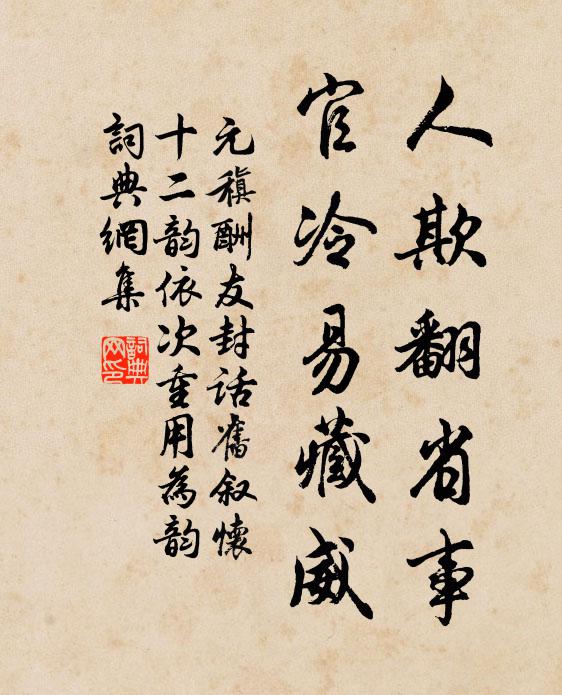 人欺翻省事
官冷易藏威
元稹酬友封話舊叙懷
十二韵依次重用為韵
詞典網集
詞典網印